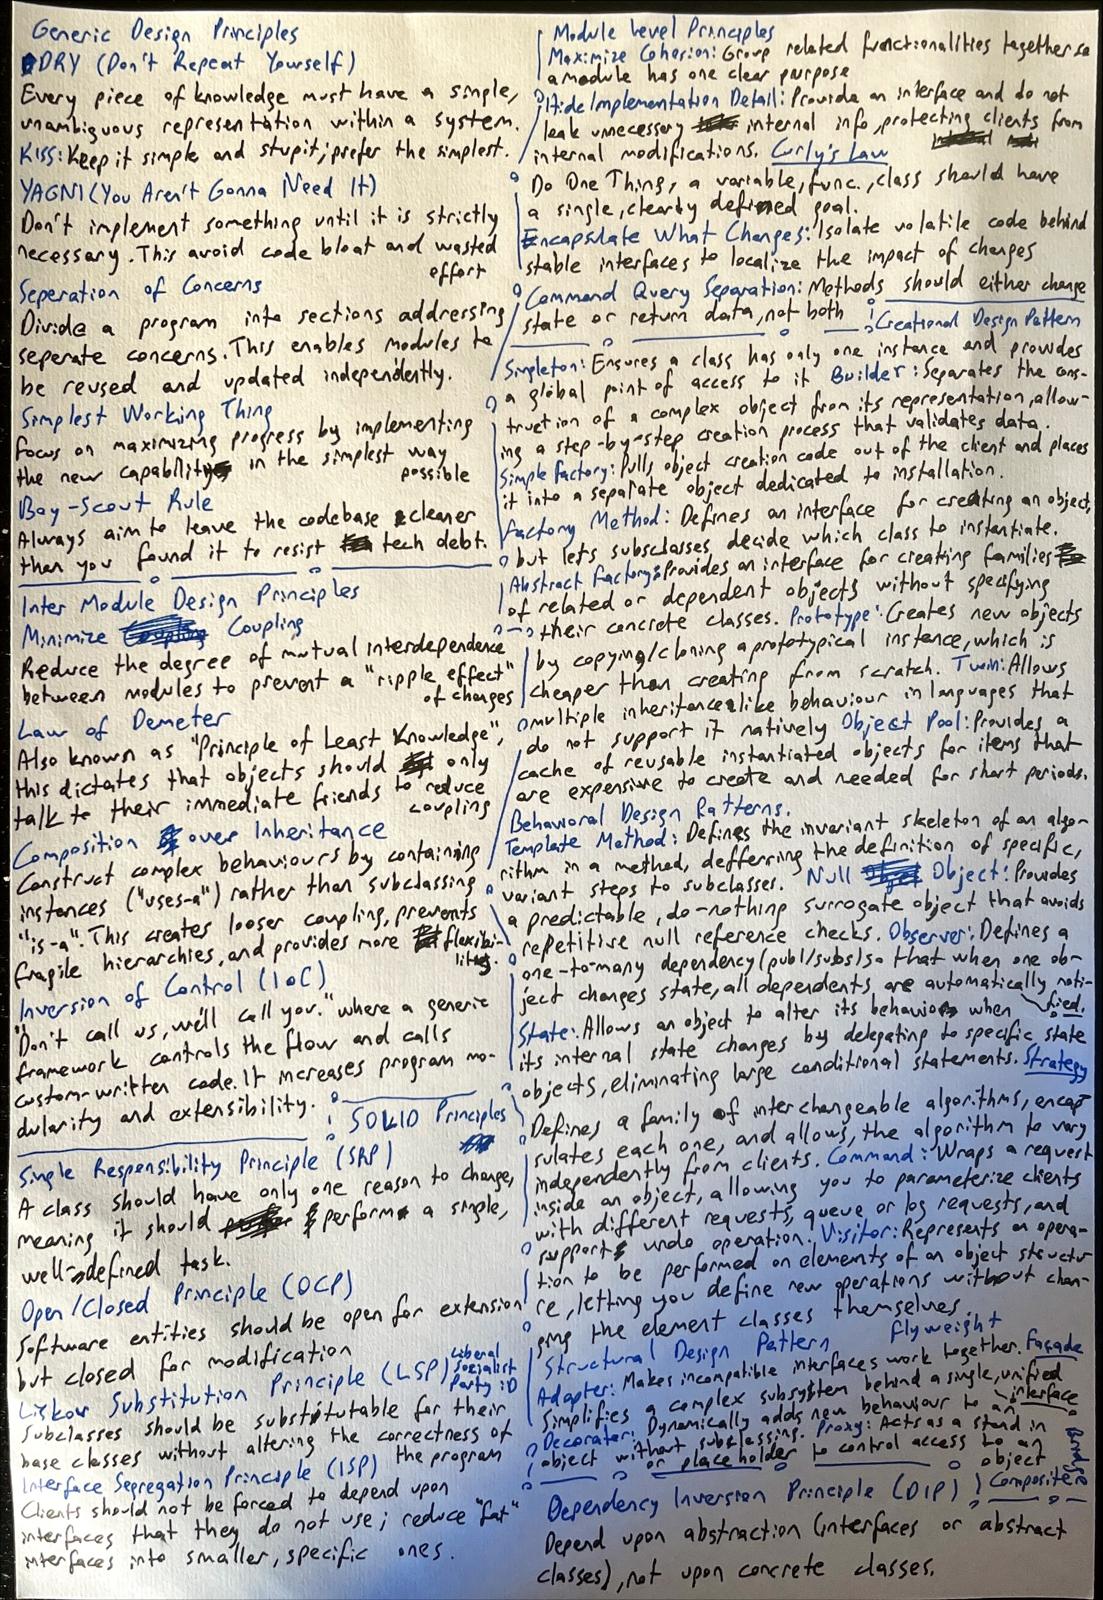 Generic Design Principles
DRY (Don't Repeat Yourself)
Every piece of knowledge must have a single,
unambiguous representation within a system.
KISS: Keep it simple and stupit; prefer the simplest.
YAGNI (You Aren't Gonna Need It)
Don't implement something until it is strictly
necessary. This avoid code bloat and wasted
effort
Seperation of Concerns
Divide a program into sections addressing
seperate concerns. This enables modules to
be reused and updated independently.
Simplest Working Thing
Focus on maximizing progress by implementing
the new capability in the simplest way
possible
Boy-Scout Rule
Always aim to leave the codebase cleaner
than you found it to resist tech debt.
Inter Module Design Principles
Minimize Coupling
Reduce the degree of mutual interdependence
between modules to prevent a "ripple effect"
of changes
Law of Demeter
Also known as "Principle of Least Knowledge",
this dictates that objects should only
talk to their immediate friends to reduce
coupling
Composition over Inheritance
Construct complex behaviours by containing
instances ("uses-a") rather than subclassing
"is-a". This creates looser coupling, prevents
fragile hierarchies, and provides more flexibi-
lity.
Inversion of Control (IoC)
"Don't call us, we'll call you." where a generic
framework controls the flow and calls
custom-written code. It increases program mo-
dularity and extensibility.
SOLID Principles
Single Responsibility Principle (SRP)
A class should have only one reason to change,
meaning it should perform a single,
well-defined task.
Open/Closed Principle (OCP)
Software entities should be open for extension
but closed for modification
Liskov Substitution Principle (LSP)
Liberal
Socialist
Party :D
Subclasses should be substitutable for their
base classes without altering the correctness of
the program
Interface Segregation Principle (ISP)
Clients should not be forced to depend upon
interfaces that they do not use; reduce "fat"
interfaces into smaller, specific ones.
Module Level Principles
Maximize Cohesion: Group related functionalities together so
a module has one clear purpose
Hide Implementation Detail: Provide an interface and do not
leak unnecessary internal info, protecting clients from
internal modifications. Curly's Law
Do One Thing, a variable, func., class should have
a single, clearly defined goal.
Encapsulate What Changes: Isolate volatile code behind
stable interfaces to localize the impact of changes
Command Query Separation: Methods should either change
state or return data, not both
Creational Design Pattern
Singleton: Ensures a class has only one instance and provides
a global point of access to it Builder: Separates the cons-
truction of a complex object from its representation, allow-
ing a step-by-step creation process that validates data.
Simple Factory: Pulls object creation code out of the client and places
it into a separate object dedicated to installation.
Factory Method: Defines an interface for creating an object,
but lets subsclasses decide which class to instantiate.
Abstract Factory: Provides an interface for creating families
of related or dependent objects without specifying
their concrete classes. Prototype: Creates new objects
by copying/cloning a prototypical instance, which is
cheaper than creating from scratch. Twin: Allows
multiple inheritance-like behaviour in languages that
do not support it natively Object Pool: Provides a
cache of reusable instantiated objects for items that
are expensive to create and needed for short periods.
Behavioral Design Patterns.
Template Method: Defines the invariant skeleton of an algo-
rithm in a method, defferring the definition of specific,
variant steps to subclasses. Null Object: Provides
a predictable, do-nothing surrogate object that avoids
repetitive null reference checks. Observer: Defines a
one-to-many dependency (publ/subs) so that when one ob-
ject changes state, all dependents are automatically noti-
fied.
State: Allows an object to alter its behavior when
its internal state changes by delegating to specific state
objects, eliminating large conditional statements. Strategy
Defines a family of interchangeable algorithms, encap
sulates each one, and allows, the algorithm to vary
independently from clients. Command: Wraps a request
inside an object, allowing you to parameterize clients
with different requests, queue or log requests, and
support undo operation. Visitor: Represents an opera-
tion to be performed on elements of an object structu-
re, letting you define new operations without chan-
ging the element classes themselves.
Structural Design Pattern Flyweight
Adapter: Makes incompatible interfaces work together. Façade
Simplifies a complex subsystem behind a single, unified
interface
Decorater: Dynamically adds new behaviour to an
object without subclassing. Proxy: Acts as a stand in
or placeholder to control access to an
object
Bridge
Composite
Dependency Inversion Principle (DIP)
Depend upon abstraction (interfaces or abstract
classes), not upon concrete classes.